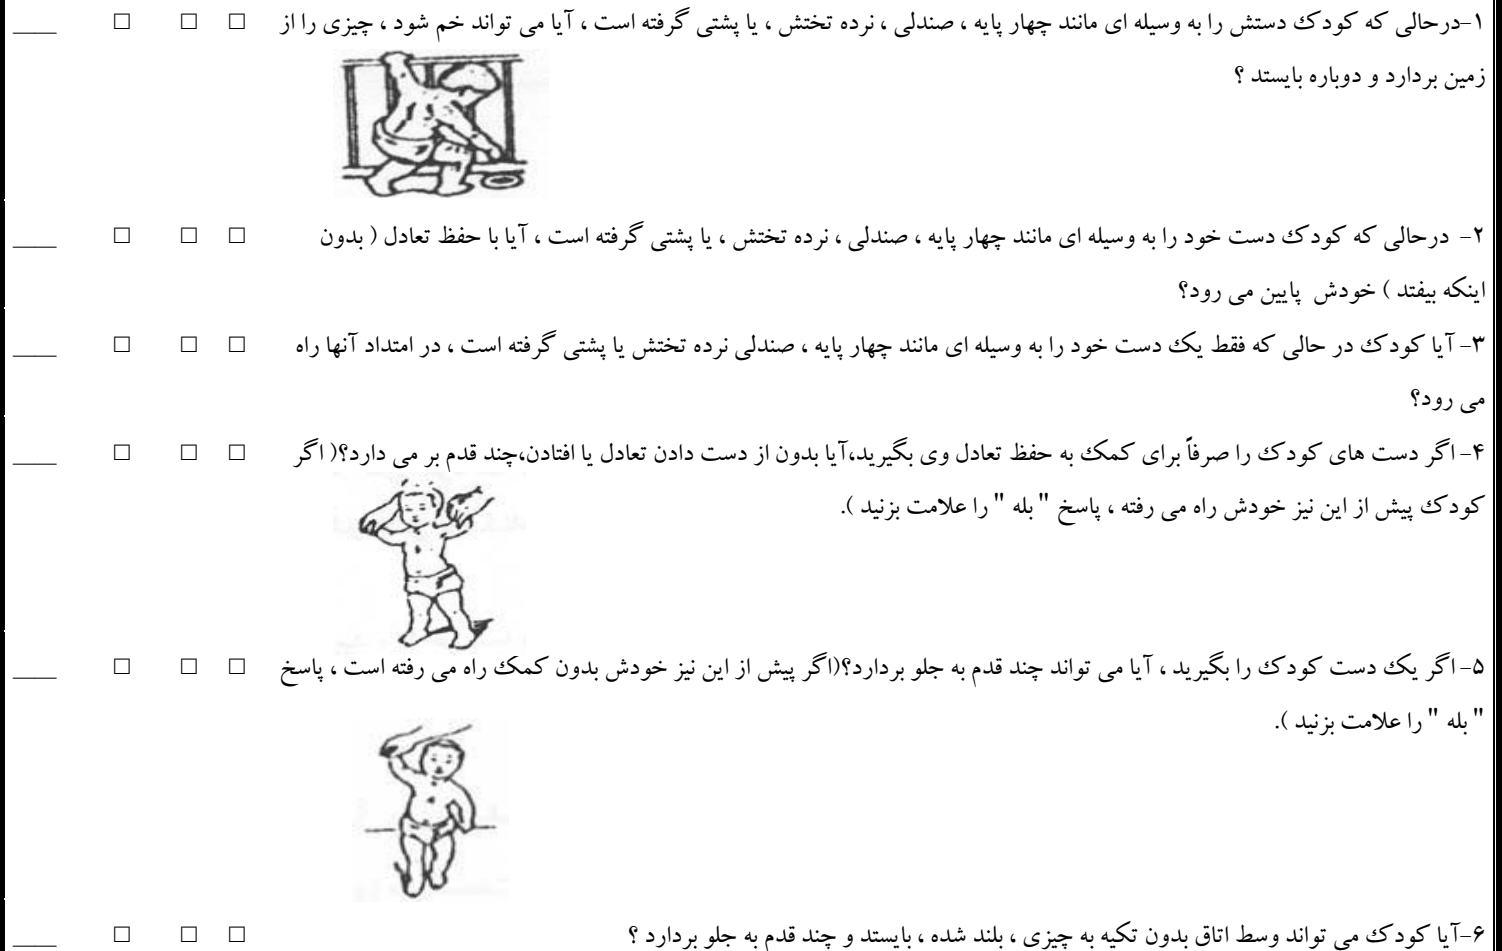 ۱-درحالی که کودک دستش را به وسیله ای مانند چهار پایه ، صندلی ، نرده تختش ، یا پشتی گرفته است ، آیا می تواند خم شود ، چیزی را از □ □ □ ____
زمین بردارد و دوباره بایستد ؟
۲- درحالی که کودک دست خود را به وسیله ای مانند چهار پایه ، صندلی ، نرده تختش ، یا پشتی گرفته است ، آیا با حفظ تعادل ( بدون □ □ □ ____
اینکه بیفتد ) خودش پایین می رود؟
۳- آیا کودک در حالی که فقط یک دست خود را به وسیله ای مانند چهار پایه ، صندلی نرده تختش یا پشتی گرفته است ، در امتداد آنها راه □ □ □ ____
می رود؟
۴- اگر دست های کودک را صرفاً برای کمک به حفظ تعادل وی بگیرید،آیا بدون از دست دادن تعادل یا افتادن،چند قدم بر می دارد؟( اگر □ □ □ ____
کودک پیش از این نیز خودش راه می رفته ، پاسخ " بله " را علامت بزنید ).
۵- اگر یک دست کودک را بگیرید ، آیا می تواند چند قدم به جلو بردارد؟(اگر پیش از این نیز خودش بدون کمک راه می رفته است ، پاسخ □ □ □ ____
" بله " را علامت بزنید ).
۶-آیا کودک می تواند وسط اتاق بدون تکیه به چیزی ، بلند شده ، بایستد و چند قدم به جلو بردارد ؟ □ □ □ ____